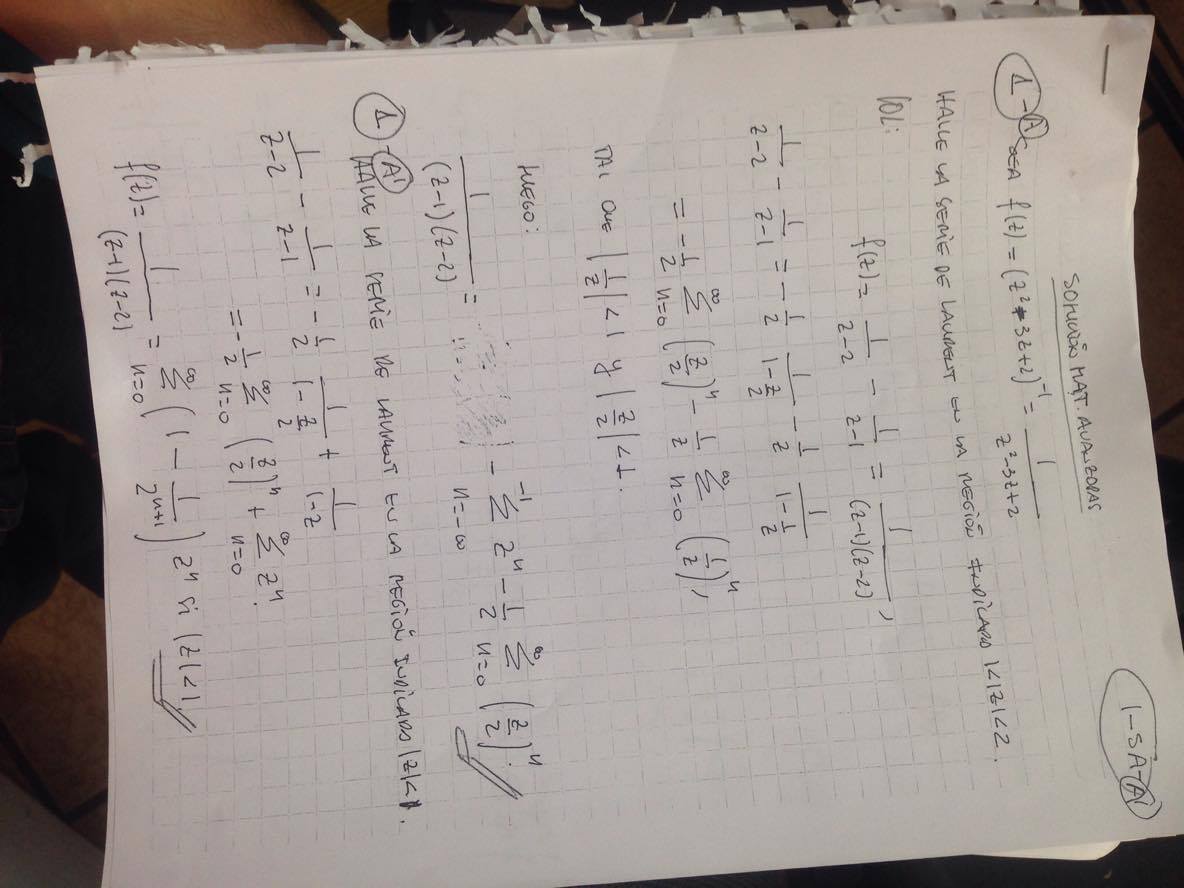 1-SA-A'
SOLUCIÓN MAT. AVANZADAS
1-A SEA f(z) = (z²-3z+2)⁻¹ = 1/(z²-3z+2)
HALLE LA SERIE DE LAURENT EN LA REGIÓN INDICADO 1<|z|<2.
SOL:
f(z) = 1/(z-2) - 1/(z-1) = 1/((z-1)(z-2)),
1/(z-2) - 1/(z-1) = -1/2 1/(1-z/2) - 1/z 1/(1-1/z)
= -1/2 ∑_{n=0}^{∞} (z/2)ⁿ - 1/z ∑_{n=0}^{∞} (1/z)ⁿ,
TAL QUE |1/z|<1 y |z/2|<1.
LUEGO:
1/((z-1)(z-2)) = -∑_{n=-∞}^{-1} zⁿ - 1/2 ∑_{n=0}^{∞} (z/2)ⁿ.
1-A'
HALLE LA SERIE DE LAURENT EN LA REGIÓN INDICADO |z|<1.
1/(z-2) - 1/(z-1) = -1/2 1/(1-z/2) + 1/(1-z)
= -1/2 ∑_{n=0}^{∞} (z/2)ⁿ + ∑_{n=0}^{∞} zⁿ.
f(z) = 1/((z-1)(z-2)) = ∑_{n=0}^{∞} (1 - 1/2^{n+1}) zⁿ si |z|<1.